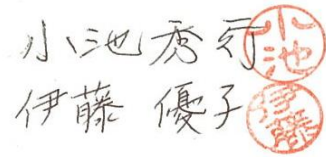 小池秀行 小池
伊藤 優子 伊藤